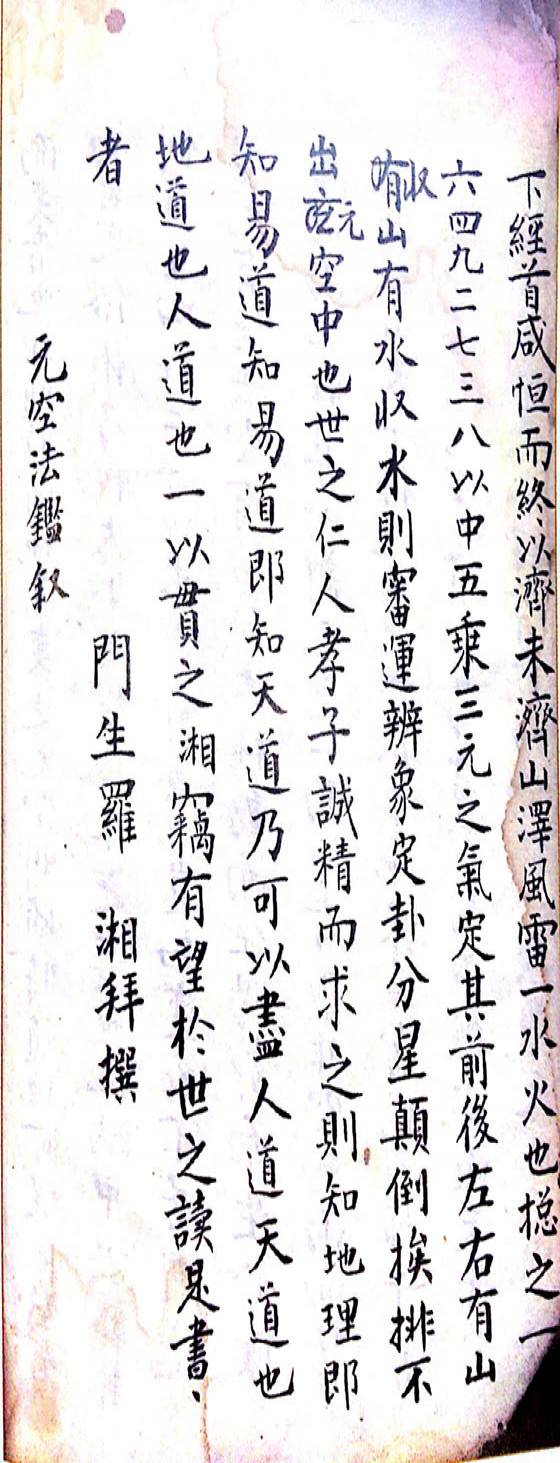 下經首咸恒而終以濟未濟山澤風雷一水火也揔之一
六四九二七三八以中五乘三元之氣定其前後左右有山
收山有水収水則審運辨象定卦分星顛倒挨排不
出元空中也世之仁人孝子誠精而求之則知地理即
知易道知易道即知天道乃可以盡人道天道也
地道也人道也一以貫之湘竊有望於世之讀是書、
者
門生羅湘拜撰
元空法鑑叙